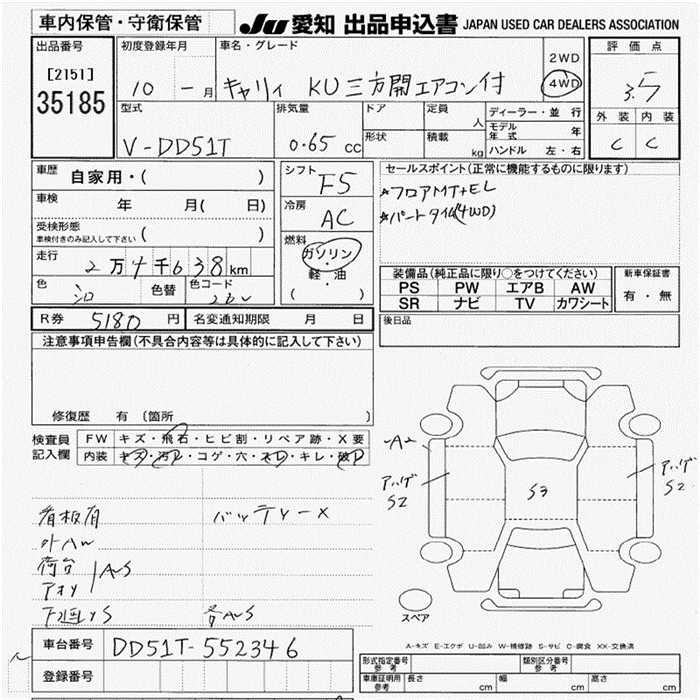 車内保管・守衛保管
JU 愛知 出品申込書 JAPAN USED CAR DEALERS ASSOCIATION
出品番号
[2151]
35185
初度登録年月
10 - 月
車名・グレード
キャリィ KU 三方開エアコン付
2WD
4WD
評価点
3.5
外装 内装
C C
型式
V-DD51T
排気量
0.65 cc
ドア
形状
定員
人
積載
kg
ディーラー・並行
モデル年式 年
ハンドル 左・右
車歴
自家用・( )
車検
年 月( 日)
受検形態
車検付きのみ記入して下さい ( )
走行
2万4千638km
色
シロ
色替
色コード
26U
シフト
F5
冷房
AC
燃料
ガソリン
・
軽・油
( )
セールスポイント(正常に機能するものに限ります)
*フロアMT+EL
*パートタイム(4WD)
装備品(純正品に限り○をつけてください)
PS PW エアB AW
SR ナビ TV カワシート
新車保証書
有・無
R券 5180 円 名変通知期限 月 日
後日品
注意事項申告欄(不具合内容等は具体的に記入して下さい)
修復歴 有 〔箇所 〕
検査員記入欄
FW キズ・飛石・ヒビ割・リペア跡・X要
内装 キズ・汚レ・コゲ・穴・スレ・キレ・破レ
看板有
バッテリーX
外ハン
荷台
アオリ
AS
下廻りS
各AS
A2
アハゲ
S2
S3
アハゲ
S2
スペア
A-キズ E-エクボ U-凹み W-補修跡 S-サビ C-腐食 XX-交換済
車台番号 DD51T-552346
登録番号
形式指定番号
参考
類別区分番号
参考
車庫証明用
参考
長さ cm 幅 cm 高さ cm